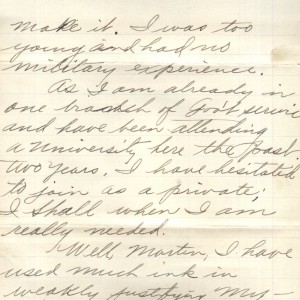 make it. I was too
young and had no
military experience.
As I am already in
one branch of Gov't service
and have been attending
a University here the past
two years, I have hesitated
to join as a private;
I shall when I am
really needed.
Well Morton, I have
used much ink in
weakly justifying my-